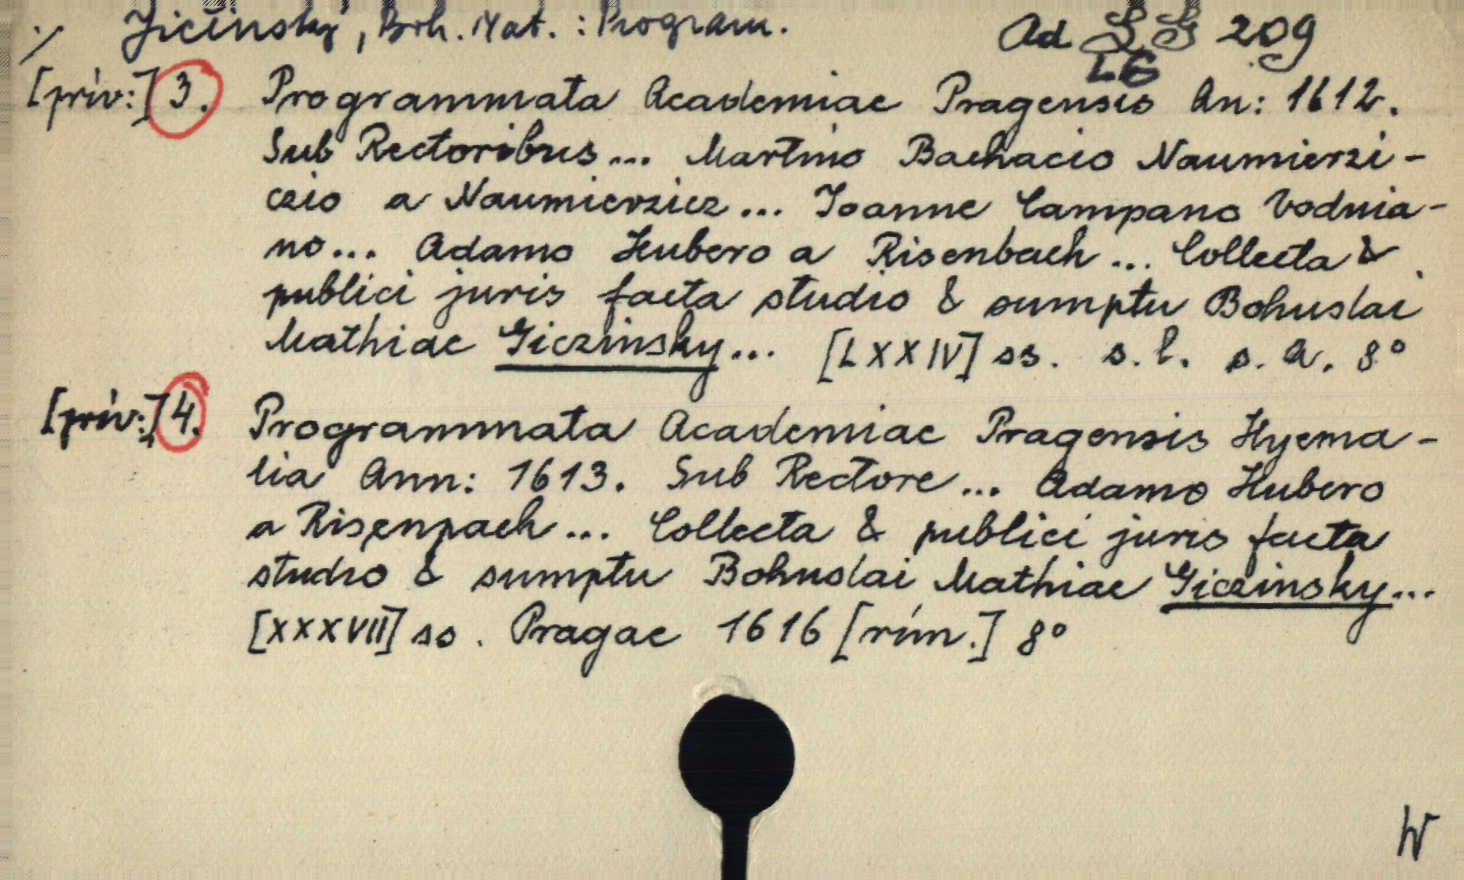 ./. Jičínský, Boh. Mat. : Program. Ad SG 209
LG
[přív:] 3. Programmata Academiae Pragensis An: 1612.
Sub Rectoribus ... Martino Bachacio Naumierzi-
czio a Naumierzicz ... Joanne Campano Vodnia-
no ... Adamo Hubero a Risenbach ... Collecta &
publici juris facta studio & sumptu Bohuslai
Mathiae Giczinsky ... [LXXIV] ss. s. l. s. a. 8°
[přív:] 4. Programmata Academiae Pragensis Hyema-
lia Ann: 1613. Sub Rectore ... Adamo Hubero
a Risenpach ... Collecta & publici juris facta
studio & sumptu Bohuslai Mathiae Giczinsky ...
[XXXVII] ss. Pragae 1616 [řím.] 8°
W